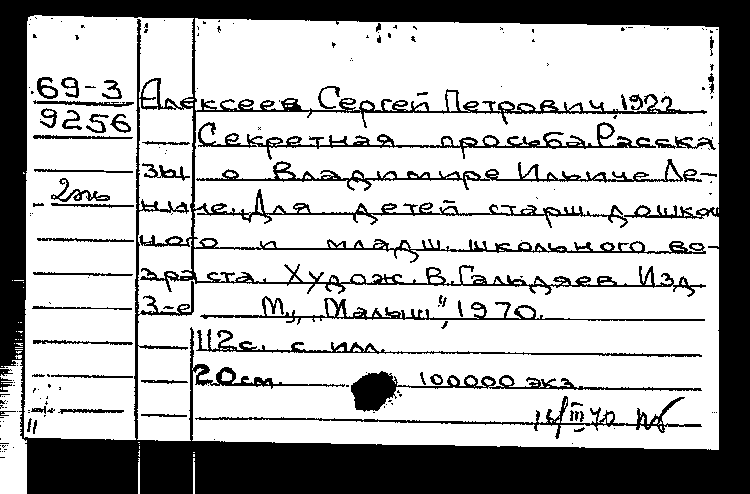 69-3
9256
2 экз
Алексеев, Сергей Петрович, 1922
Секретная просьба. Расска
зы о Владимире Ильиче Ле-
нине. Для детей старш. дошколь
ного и младш. школьного во-
зраста. Худож. В. Гальдяев. Изд
3-е М., "Малыш", 1970.
112 с. с илл.
20 см. 100000 экз.
16/III 70
11